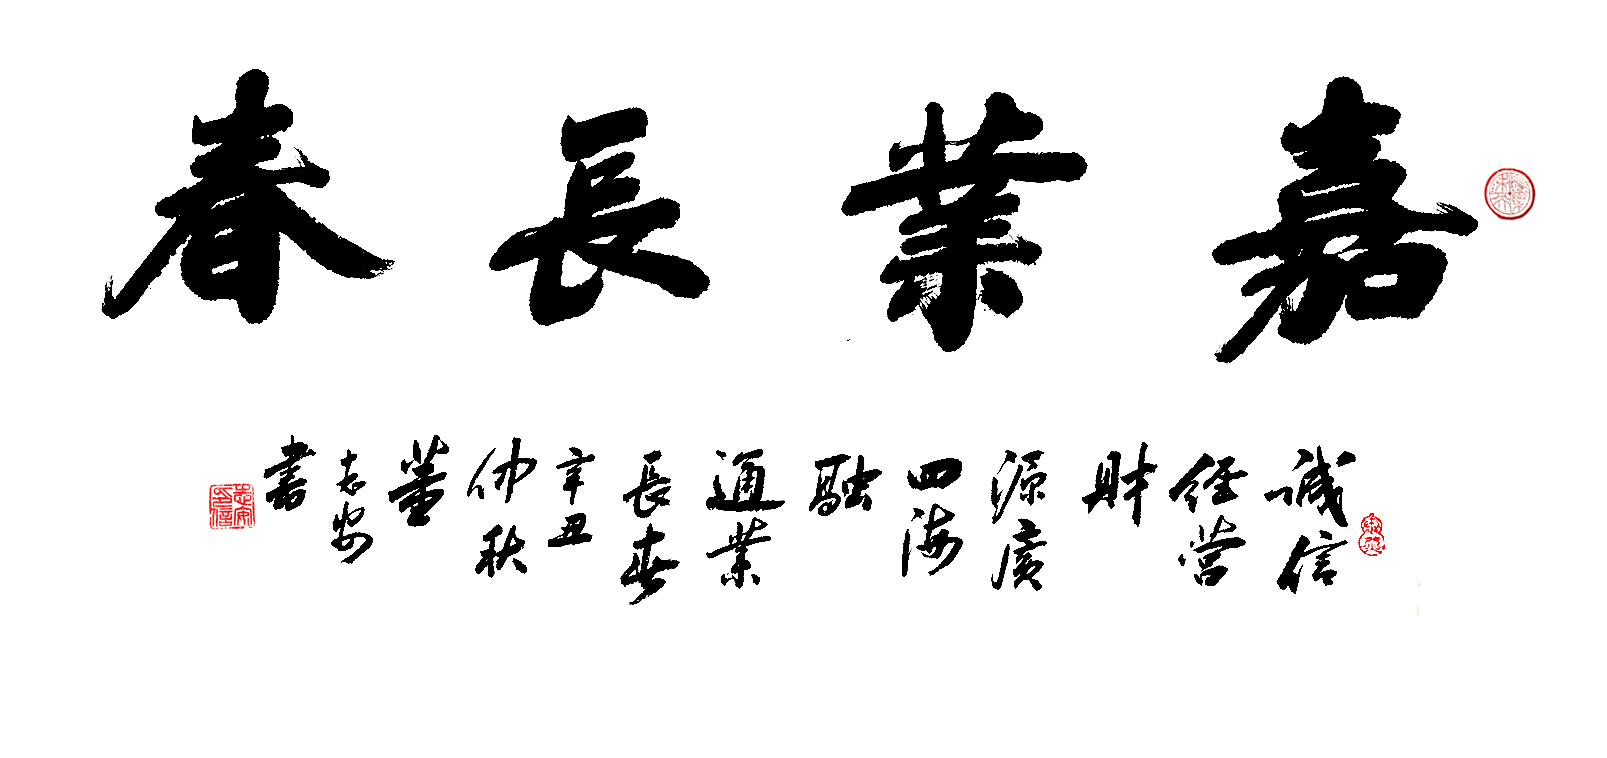 嘉業長春
誠信
经营
財
源廣
四海
融
通業
長春
辛丑
仲秋
董
志安
書
志安
印信